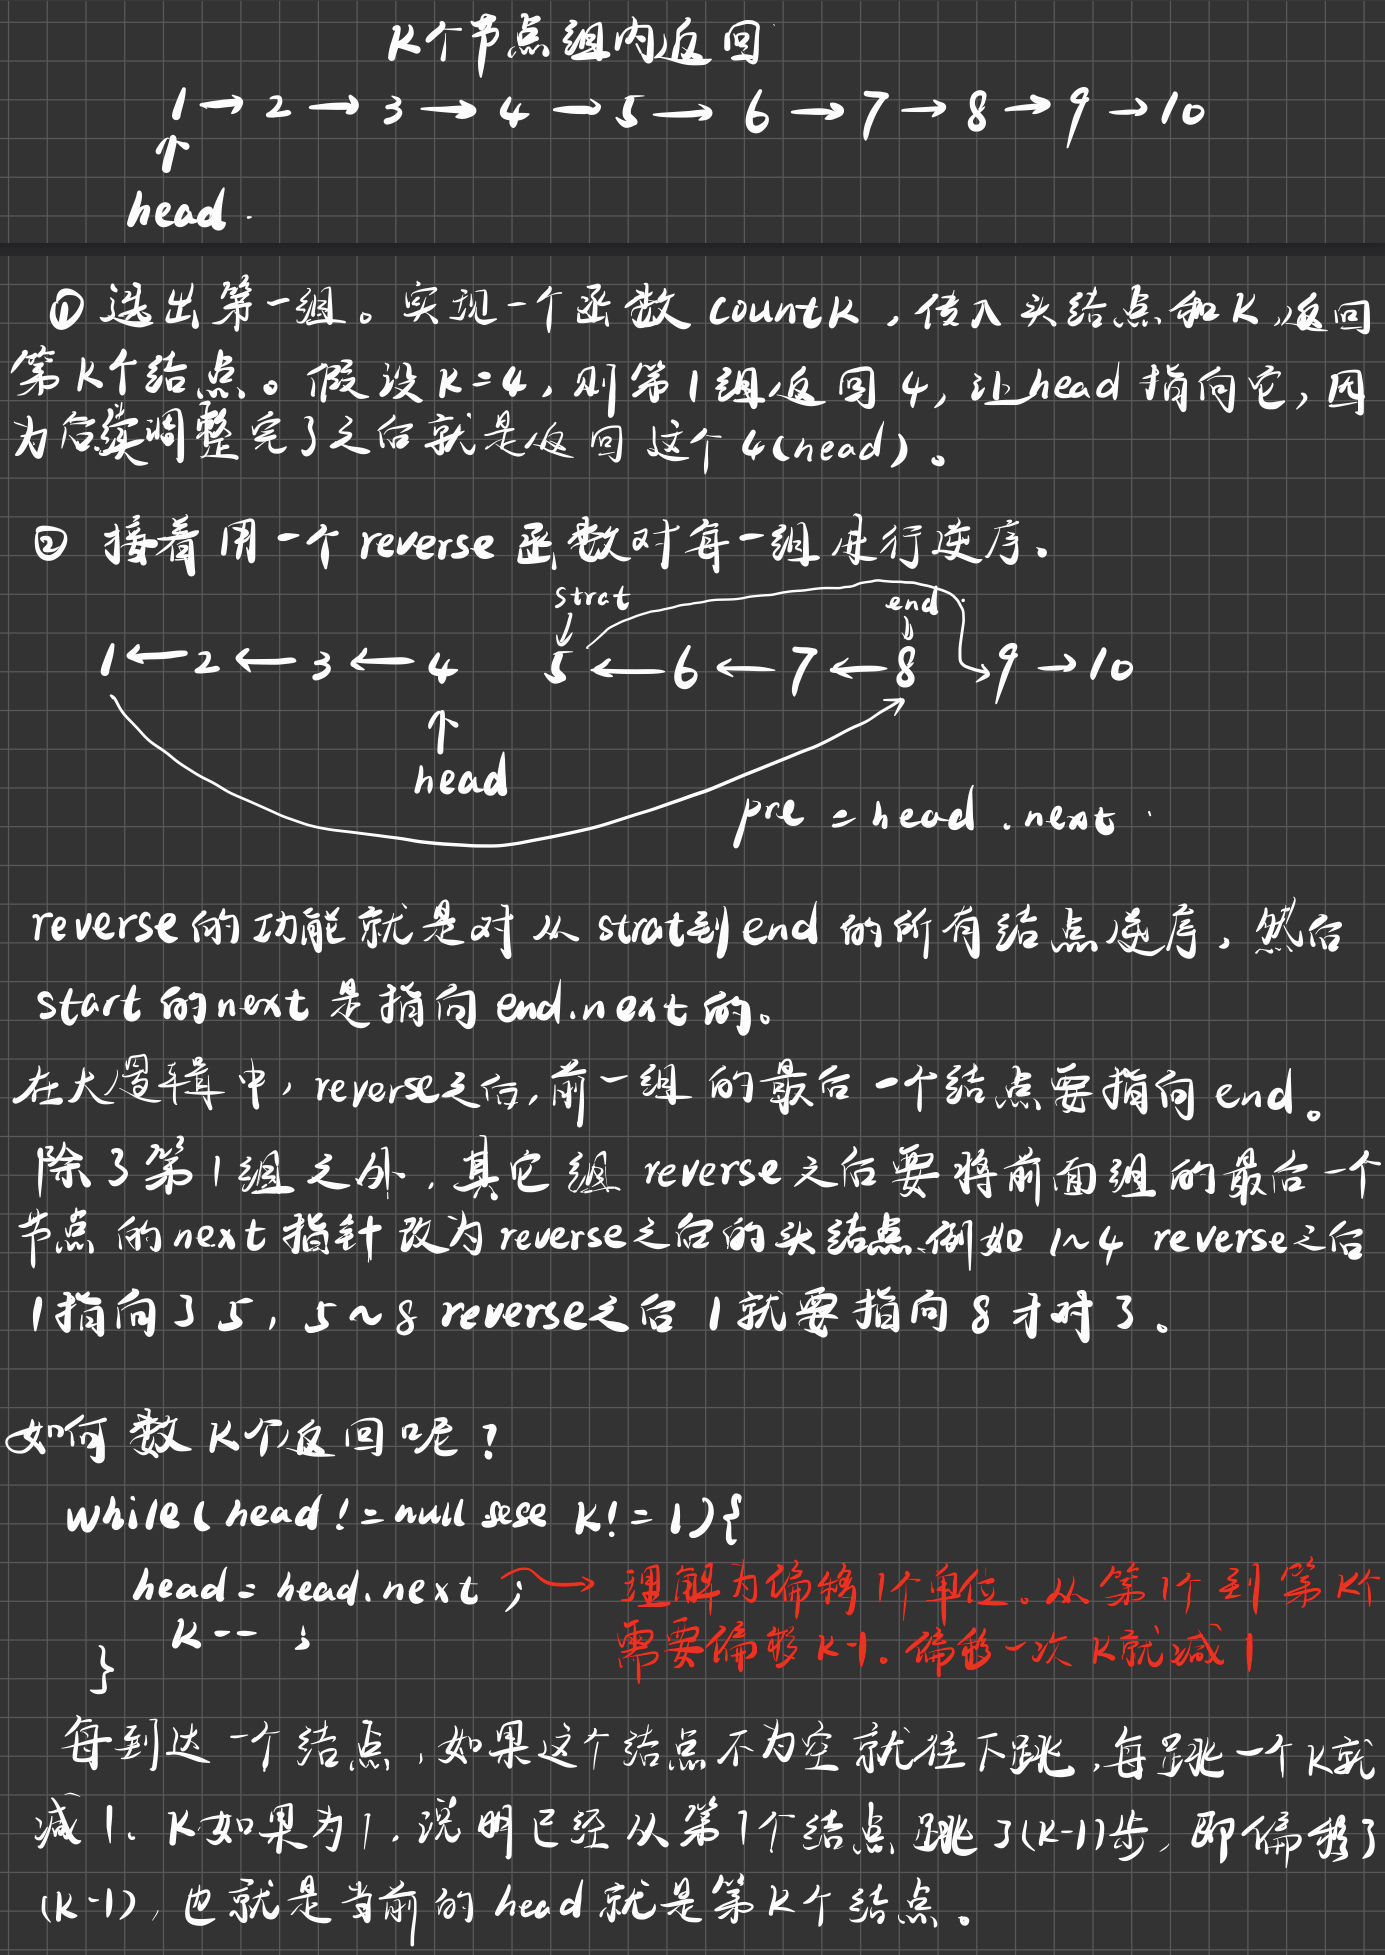 K个节点组内返回
1 → 2 → 3 → 4 → 5 → 6 → 7 → 8 → 9 → 10
↑
head.
① 选出第一组。实现一个函数 countK，传入头结点和K，返回
第K个结点。假设K=4，则第1组返回4，让head指向它，因
为后续调整完了之后就是返回这个4(head)。
② 接着用一个 reverse 函数对每一组进行逆序.
strat end
1 ← 2 ← 3 ← 4 5 ← 6 ← 7 ← 8 9 → 10
↑
head
pre = head.next
reverse的功能就是对从strat到end的所有结点逆序，然后
start的next是指向end.next的。
在大逻辑中，reverse之后，前一组的最后一个结点要指向end。
除了第1组之外，其它组reverse之后要将前面组的最后一个
节点的next指针改为reverse之后的头结点.例如 1~4 reverse之后
1指向了5，5~8 reverse之后 1就要指向8才对了。
如何数K个返回呢？
while(head!=null && K!=1){
head = head.next ; → 理解为偏移1个单位。从第1个到第K个
K-- ; 需要偏移K-1。偏移一次K就减1
}
每到达一个结点，如果这个结点不为空就往下跳，每跳一个K就
减1。K如果为1，说明已经从第1个结点跳了(K-1)步，即偏移了
(K-1)，也就是当前的head就是第K个结点。